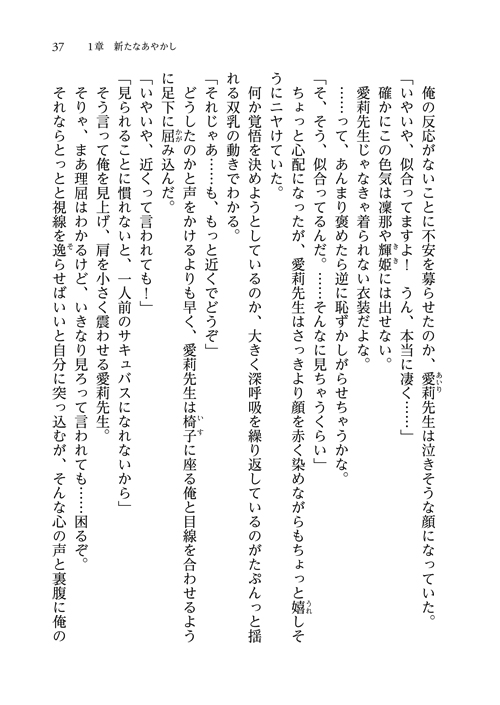 37　1章　新たなあやかし
俺の反応がないことに不安を募らせたのか、愛莉先生は泣きそうな顔になっていた。
「いやいや、似合ってますよ！　うん、本当に凄く……」
確かにこの色気は凜那や輝姫には出せない。
愛莉先生じゃなきゃ着られない衣装だよな。
……って、あんまり褒めたら逆に恥ずかしがらせちゃうかな。
「そ、そう、似合ってるんだ。……そんなに見ちゃうくらい」
ちょっと心配になったが、愛莉先生はさっきより顔を赤く染めながらもちょっと嬉しそ
うにニヤけていた。
何か覚悟を決めようとしているのか、大きく深呼吸を繰り返しているのがたぷんっと揺
れる双乳の動きでわかる。
「それじゃあ……も、もっと近くでどうぞ」
どうしたのかと声をかけるよりも早く、愛莉先生は椅子に座る俺と目線を合わせるよう
に足下に屈み込んだ。
「いやいや、近くって言われても！」
「見られることに慣れないと、一人前のサキュバスになれないから」
そう言って俺を見上げ、肩を小さく震わせる愛莉先生。
そりゃ、まあ理屈はわかるけど、いきなり見ろって言われても……困るぞ。
それならとっとと視線を逸らせばいいと自分に突っ込むが、そんな心の声と裏腹に俺の